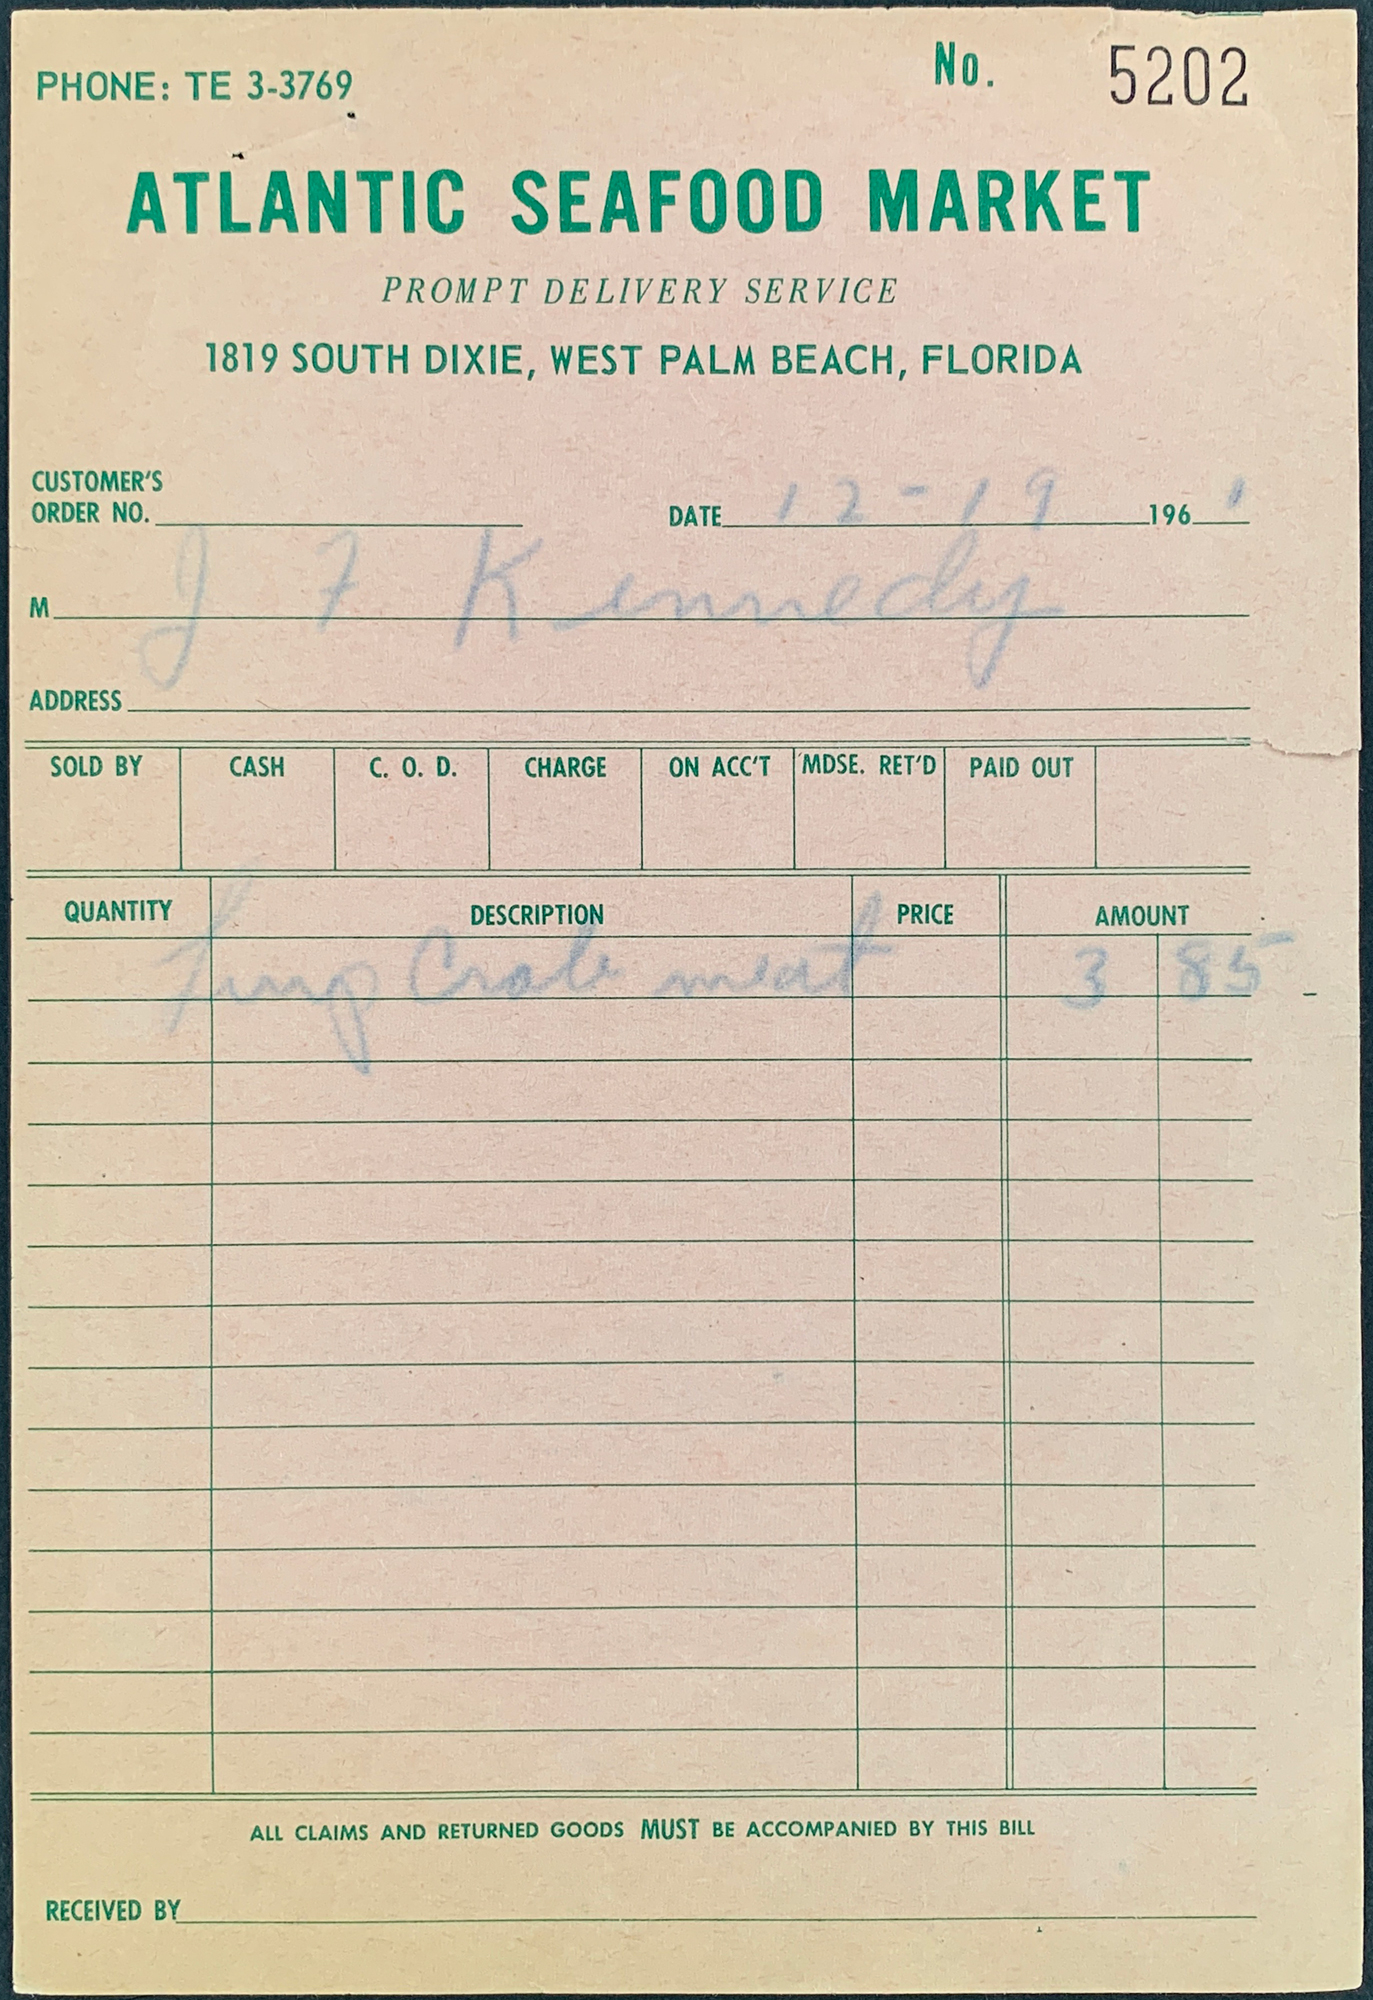 PHONE: TE 3-3769
No. 5202
ATLANTIC SEAFOOD MARKET
PROMPT DELIVERY SERVICE
1819 SOUTH DIXIE, WEST PALM BEACH, FLORIDA
CUSTOMER'S
ORDER NO.
DATE 12-19 1961
M J F Kennedy
ADDRESS
SOLD BY CASH C. O. D. CHARGE ON ACC'T MDSE. RET'D PAID OUT
QUANTITY DESCRIPTION PRICE AMOUNT
Crab meat 3 85
ALL CLAIMS AND RETURNED GOODS MUST BE ACCOMPANIED BY THIS BILL
RECEIVED BY